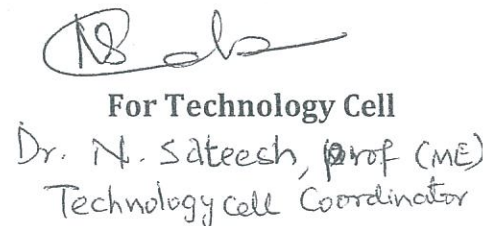 For Technology Cell
Dr. N. Sateesh, prof (ME)
Technology cell Coordinator